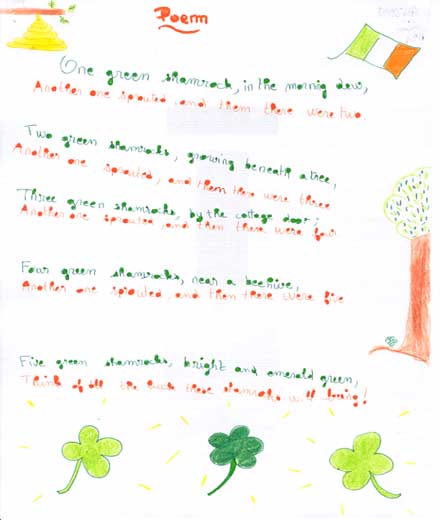 Poem
One green shamrock, in the mornig dew,
Another one sprouted, and them there were two.
Two green shamrocks, growing beneath a tree,
Another one sprouted, and then there were three
Three green shamrocks, by the cottage door;
Another one sprouted, and then there were four
Four green shamrocks, near a beehive,
Another one sprouted, and then there were five
Five green shamrocks, bright and emerald green,
Think of all the luck those shamroks will bring!